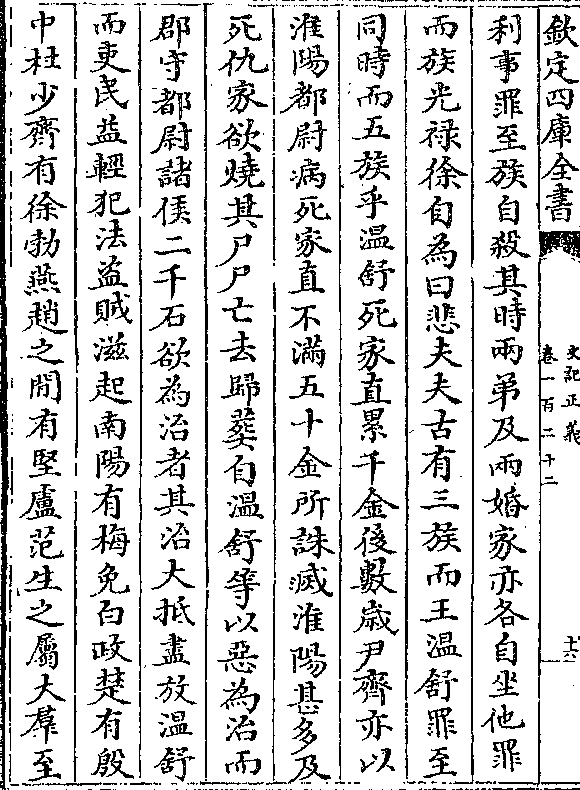 欽定四庫全書
史記正義
卷一百二十二
十六
利事罪至族自殺其時兩弟及兩婚家亦各自坐他罪
而族光祿徐自為曰悲夫夫古有三族而王溫舒罪至
同時而五族乎溫舒死家直累千金後數歲尹齊亦以
淮陽都尉病死家直不滿五十金所誅滅淮陽甚多及
死仇家欲燒其尸尸亡去歸葬自溫舒等以惡為治而
郡守都尉諸侯二千石欲為治者其治大抵盡放溫舒
而吏民益輕犯法盜賊滋起南陽有梅免白政楚有殷
中杜少齊有徐勃燕趙之閒有堅盧范生之屬大羣至